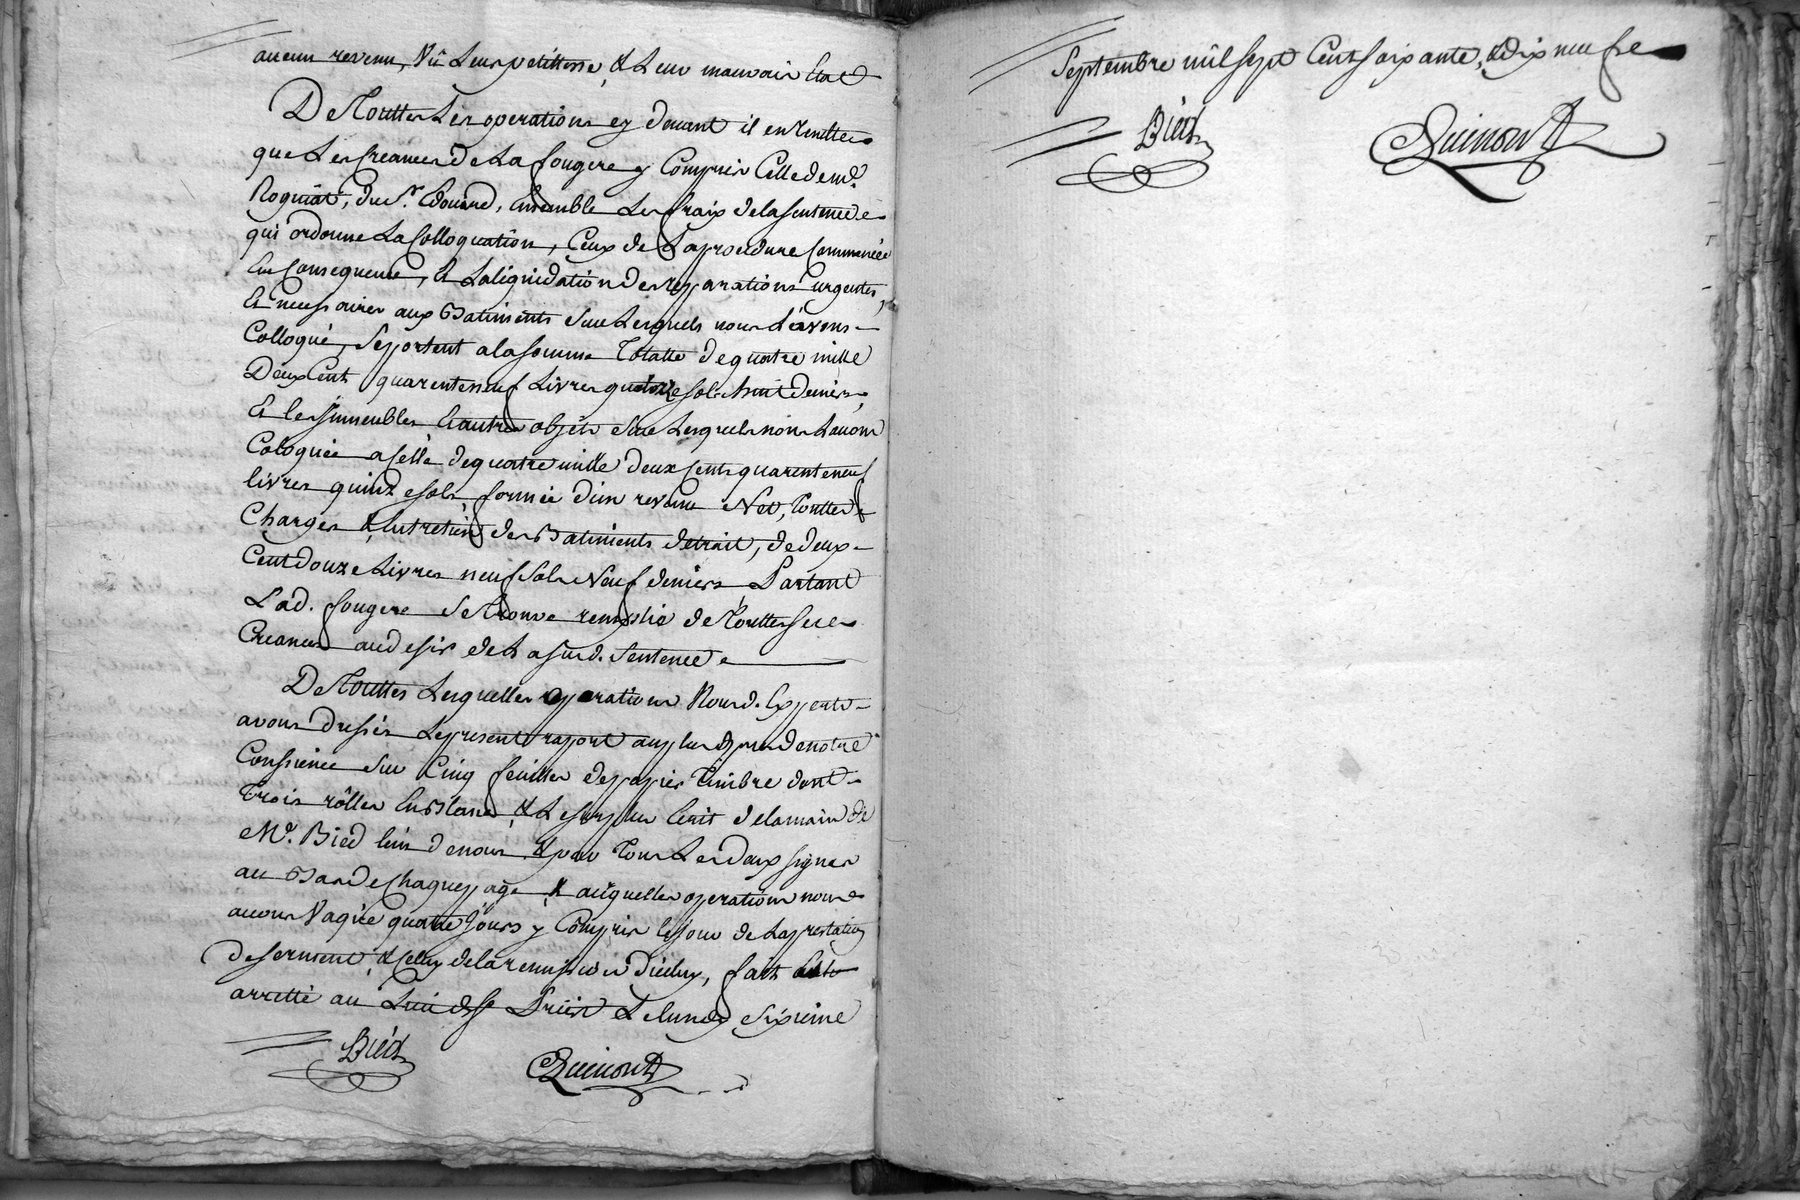 aucun revenu, Vû Leur petittesse, & Leur mauvais Etat
De Touttes Les operations cy devant il en Resulte
que Les Creances de La fougere y Compris Celle de md.
Rogniat, du Sr. Edouard, Ensemble Les fraix de la sentence
qui ordonne La Colloquation, Ceux de La procedure Commencée
En Consequence, Et La liquidation des reparations urgentes,
Et necessaires aux Batiments Sur Lesquels nous L'avons
Colloqué, Se portent a la somme Totalle de quatre mille
Deux Cent quarente neuf Livres quatorze sols huit deniers,
Et les immeubles & autres objets Sur Lesquels nous L'avons
Coloquée a Celle de quatre mille deux Cents quarente neuf
livres quinze sols formée d'un revenu Net, Touttes
Charges & Entretien des Batiments detrait, de deux
Cent douze Livres neuf Sols Neuf deniers, Partant
Lad. fougere Se trouve remplie de Touttes ses
Creances au desir de La susd. Sentence
De Touttes Lesquelles operations Nousd. Experts
avons dressés Le present raport au plus pres de notre
Consience sur Cinq feuilles de papier Timbre dont
Trois rôlles En Blanc, & Le surplus Ecrit de la main de
Me. Bied l'un de nous & par Tous Les deux signés
au Bas de Chaque page & auquelles operations nous
avons Vaqué quatre Jours y Compris le jour de La prestation
de serment & Celuy de la remission d'iceluy, fait &
arretté au Le lundy sixieme
Bied
Quinon
Septembre mil sept Cent soixante & dix neuf
Bied
Quinon